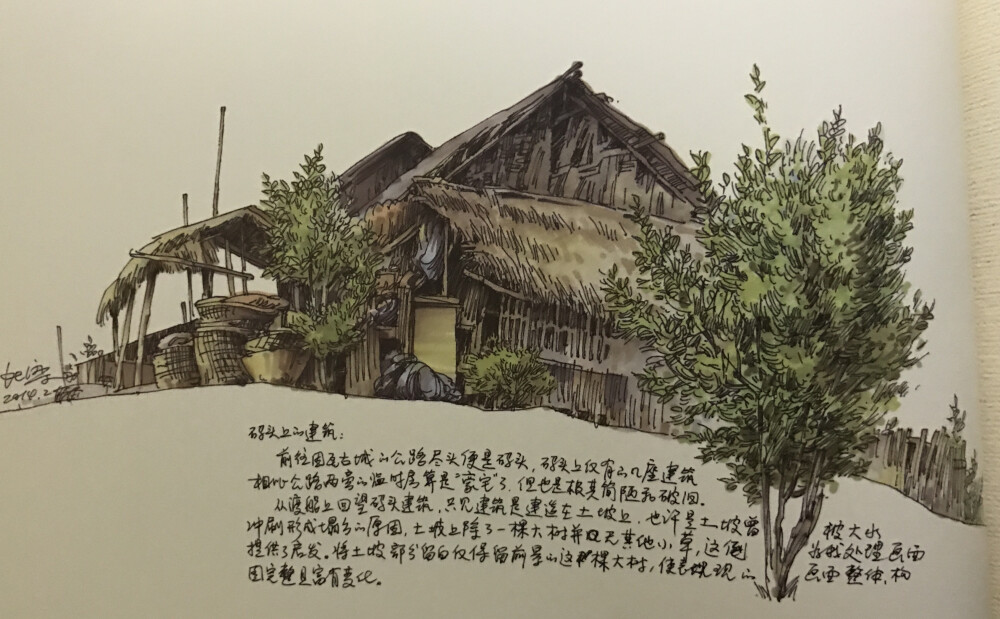 码头上的建筑：
前往因瓦古城的公路尽头便是码头，码头上仅有的几座建筑
相比公路两旁的临时房算是“豪宅”了，但也是极其简陋和破旧。
从渡船上回望码头建筑，只见建筑是建造在土坡上，也许是土坡曾被大水
冲刷形成塌方的原因，土坡上除了一棵大树并且无其他小草，这倒为我处理画面
提供了启发。将土坡部分留白仅保留前景的这棵大树，使表现的画面整体，构
图完整且富有变化。
2014.2